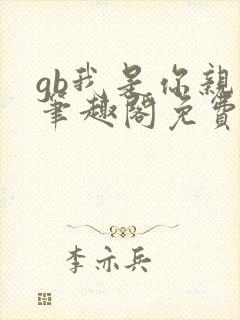 gb我是你親
筆趣閣免費
李亦兵